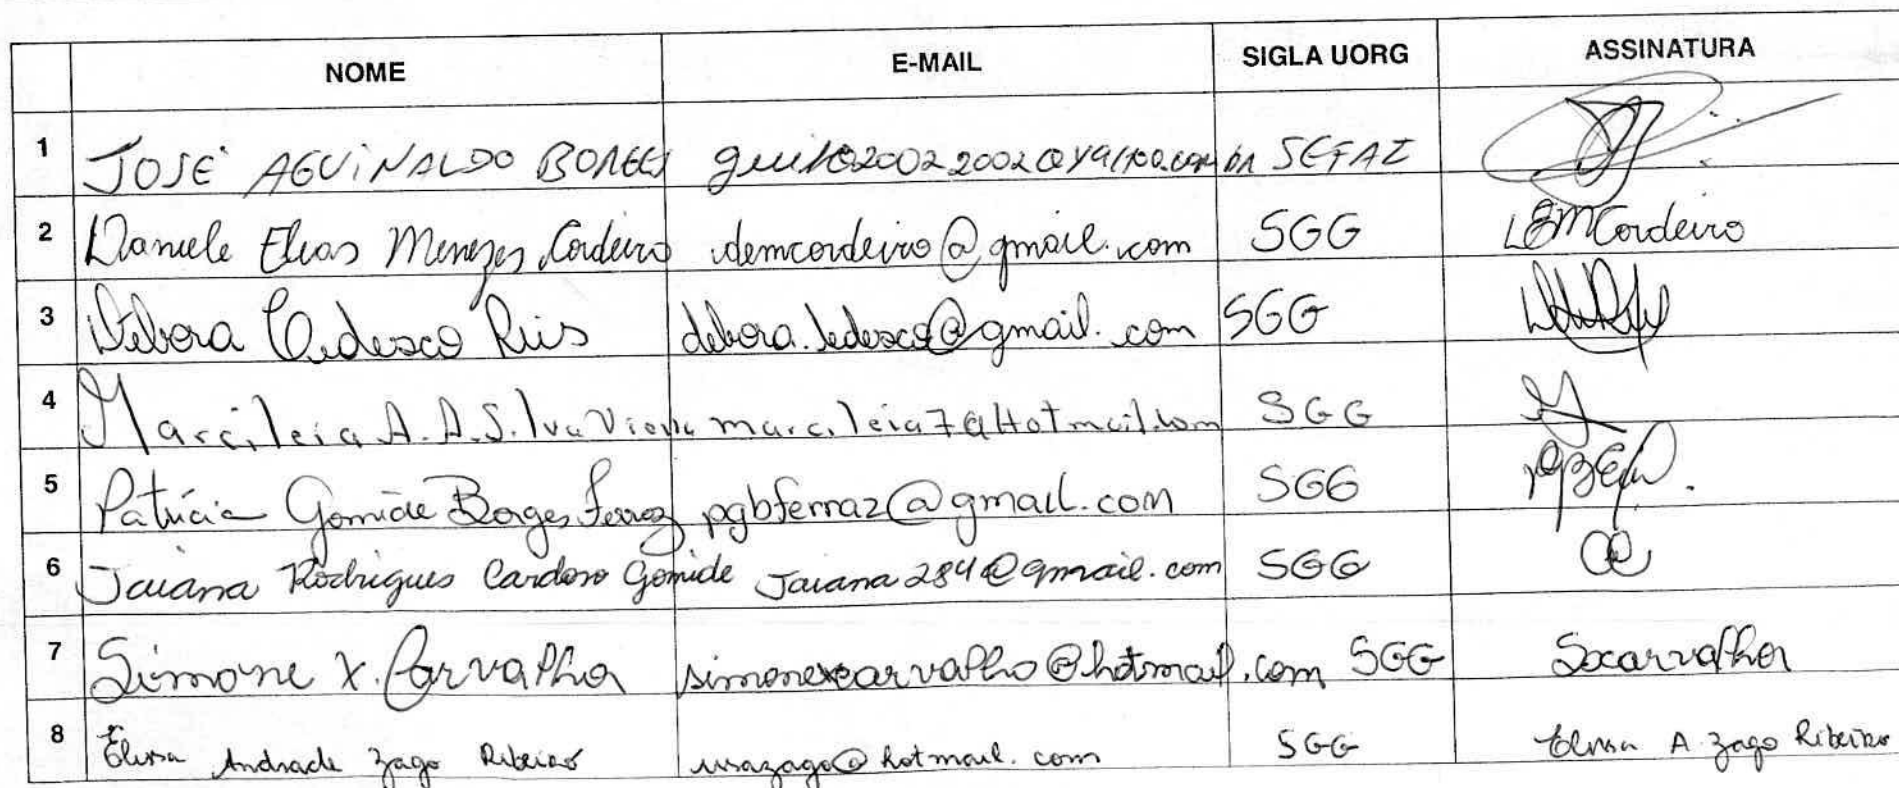 NOME E-MAIL SIGLA UORG ASSINATURA
1 JOSÉ AGUINALDO BORGES SEFAZ
2 Daniele Elias Menezes Cordeiro demcordeiro@gmail.com SGG DEMCordeiro
3 Débora Tedesco Ruis debora.tedesco@gmail.com SGG
4 Marcileia A. A. Silva Viana marcileia7@Hotmail.com SGG
5 Patrícia Gomide Borges Ferraz pgbferraz@gmail.com SGG
6 Jaiana Rodrigues Cardoso Gomide Jaiana284@gmail.com SGG
7 Simone X. Carvalho simonexcarvalho@hotmail.com SGG Sxcarvalho
8 Andrade Zago Ribeiro hotmail.com SGG A. Zago Ribeiro